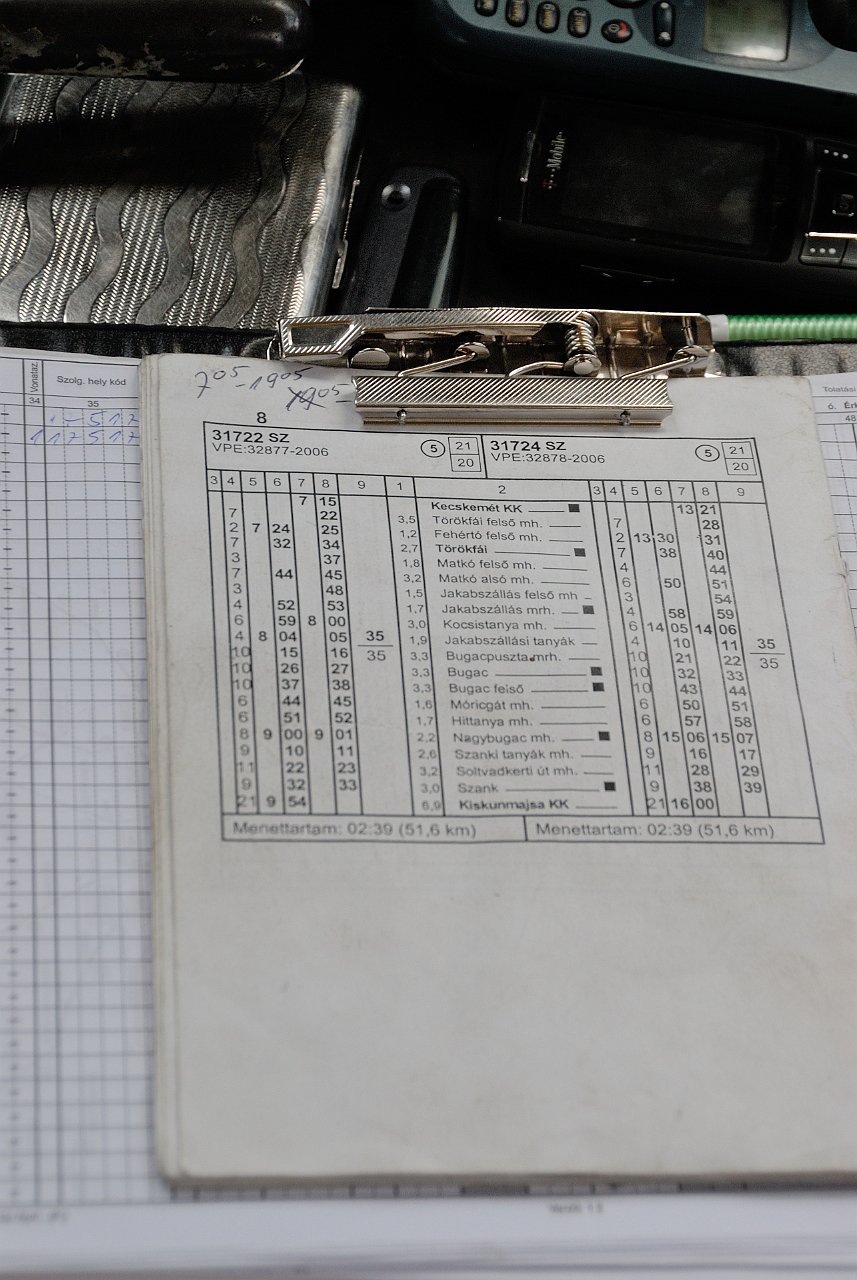 T··Mobile·
Vonatsz.
Szolg. hely kód
34 35
117517
7⁰⁵-19⁰⁵
8
31722 SZ 5 21 31724 SZ 5 21
VPE:32877-2006 20 VPE:32878-2006 20
3 4 5 6 7 8 9 1 2 3 4 5 6 7 8 9
7 15 Kecskemét KK 13 21
7 22 3,5 Törökfái felső mh. 7 28
2 7 24 25 1,2 Fehértó felső mh. 2 13 30 31
7 32 34 2,7 Törökfái 7 38 40
3 37 1,8 Matkó felső mh. 4 44
7 44 45 3,2 Matkó alsó mh. 6 50 51
3 48 1,5 Jakabszállás felső mh 3 54
4 52 53 1,7 Jakabszállás mrh. 4 58 59
6 59 8 00 3,0 Kocsistanya mh. 6 14 05 14 06
4 8 04 05 35 1,9 Jakabszállási tanyák 4 10 11 35
10 15 16 35 3,3 Bugacpuszta mrh. 10 21 22 35
10 26 27 3,3 Bugac 10 32 33
10 37 38 3,3 Bugac felső 10 43 44
6 44 45 1,6 Móricgát mh. 6 50 51
6 51 52 1,7 Hittanya mh. 6 57 58
8 9 00 9 01 2,2 Nagybugac mh. 8 15 06 15 07
9 10 11 2,6 Szanki tanyák mh. 9 16 17
11 22 23 3,2 Soltvadkerti út mh. 11 28 29
9 32 33 3,0 Szank 9 38 39
21 9 54 6,9 Kiskunmajsa KK 21 16 00
Menettartam: 02:39 (51,6 km) Menettartam: 02:39 (51,6 km)
Tolatási
ó. Érk
48